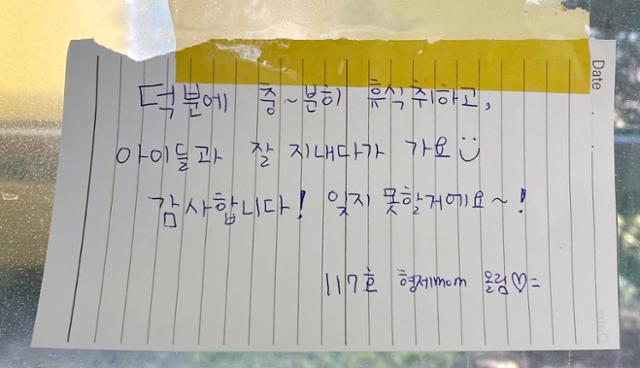 덕분에 충~분히 휴식취하고,
아이들과 잘 지내다가 가요
감사합니다! 잊지 못할거에요~!
117호 형제mom 올림♡=
Date